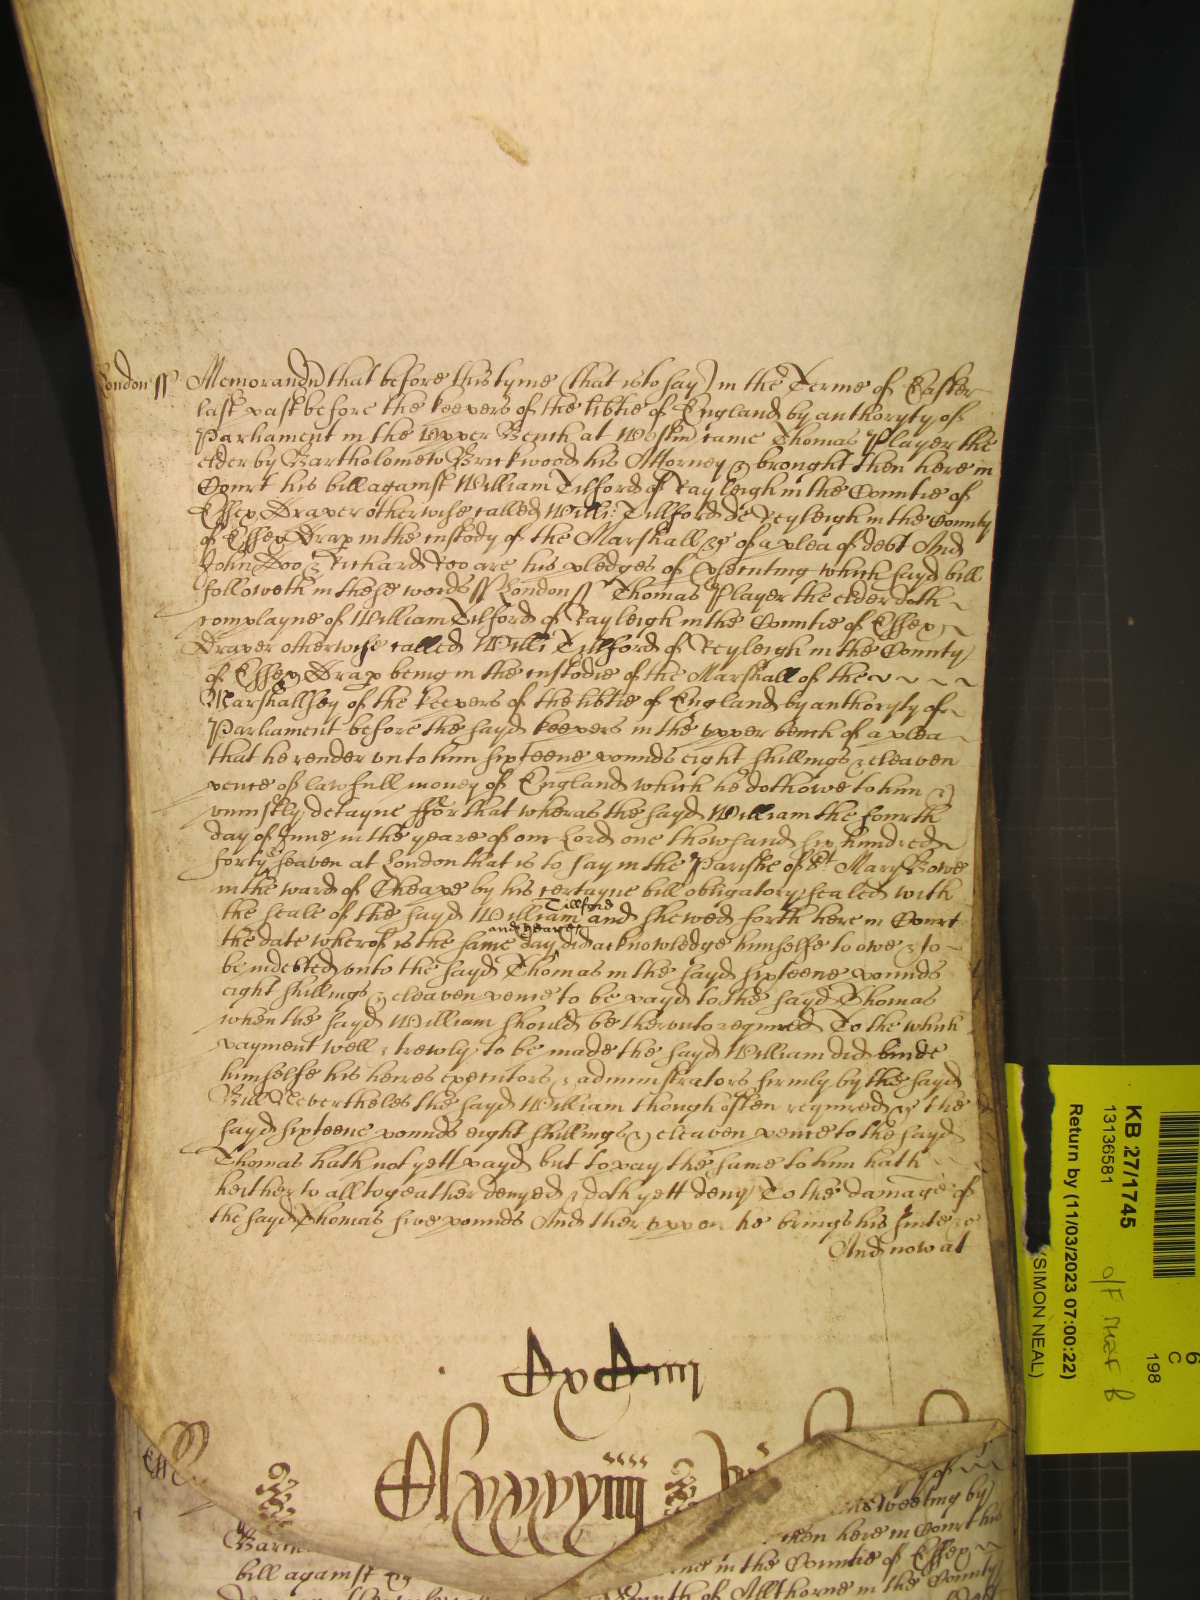 London ss Memorand(u) that before this tyme (that is to say) in the Terme of Easter
last past before the keepers of the libtie of England by authoryty of
Parliament in the Upper Bench at Westm came Thomas Player the
elder by Bartholomew Brickwood his Attorney & brought then here in
Court his bill against William Tilford of Rayleigh in the Countie of
Essex Draper otherwise called Willi: Tillford de Reyleigh in the County
of Essex Drap in the custody of the Marshall &c of a plea of debt And
John Doo & Richard Roo are his pledges of prosecuting which sayd bill
followeth in these words ss London ss Thomas Player the elder doth
complayne of William Tilford of Rayleigh in the Countie of Essex
Draper otherwise called Willi Tillford of Reyleigh in the County
of Essex Drap being in the custodie of the Marshall of the
Marshallsey of the keepers of the libtie of England by authoryty of
Parliament before the sayd keepers in the upper bench of a plea
that he render unto him sixteene pounds eight shillings & eleaven
pence of lawfull money of England which he doth owe to him &
uniustly detayne ffor that wheras the sayd William the fourth
day of June in the yeare of our Lord one thowsand six hundred
forty seaven at London that is to say in the Parishe of St Mary Bowe
in the ward of Cheape by his certayne bill obligatory sealed with
the seale of the sayd William Tillford and shewed forth here in Court
the date wherof is the same day and yeare did acknowledge himselfe to owe & to
be indebted unto the sayd Thomas in the sayd sixteene pounds
eight shillings & eleaven pence to be payd to the sayd Thomas
when the sayd William should be therunto required To the which
payment well & trewly to be made the sayd William did binde
himselfe his heires executors & administrators firmly by the sayd
Bill Nevertheles the sayd William though often required &c the
sayd sixteene pounds eight shillings & eleaven pence to the sayd
Thomas hath not yett payd but to pay the same to him hath
heitherto alltogeather denyed & doth yett deny To the damage of
the sayd Thomas five pounds And theruppon he brings his suite &c
And now at
Ess
of
weeling by
Barth
then here in Court his
bill against
in the Countie of Essex
of Allthorne in the County
KB 27/1745
13136581
Return by (11/03/2023 07:00:22)
(SIMON NEAL)
6
C
198